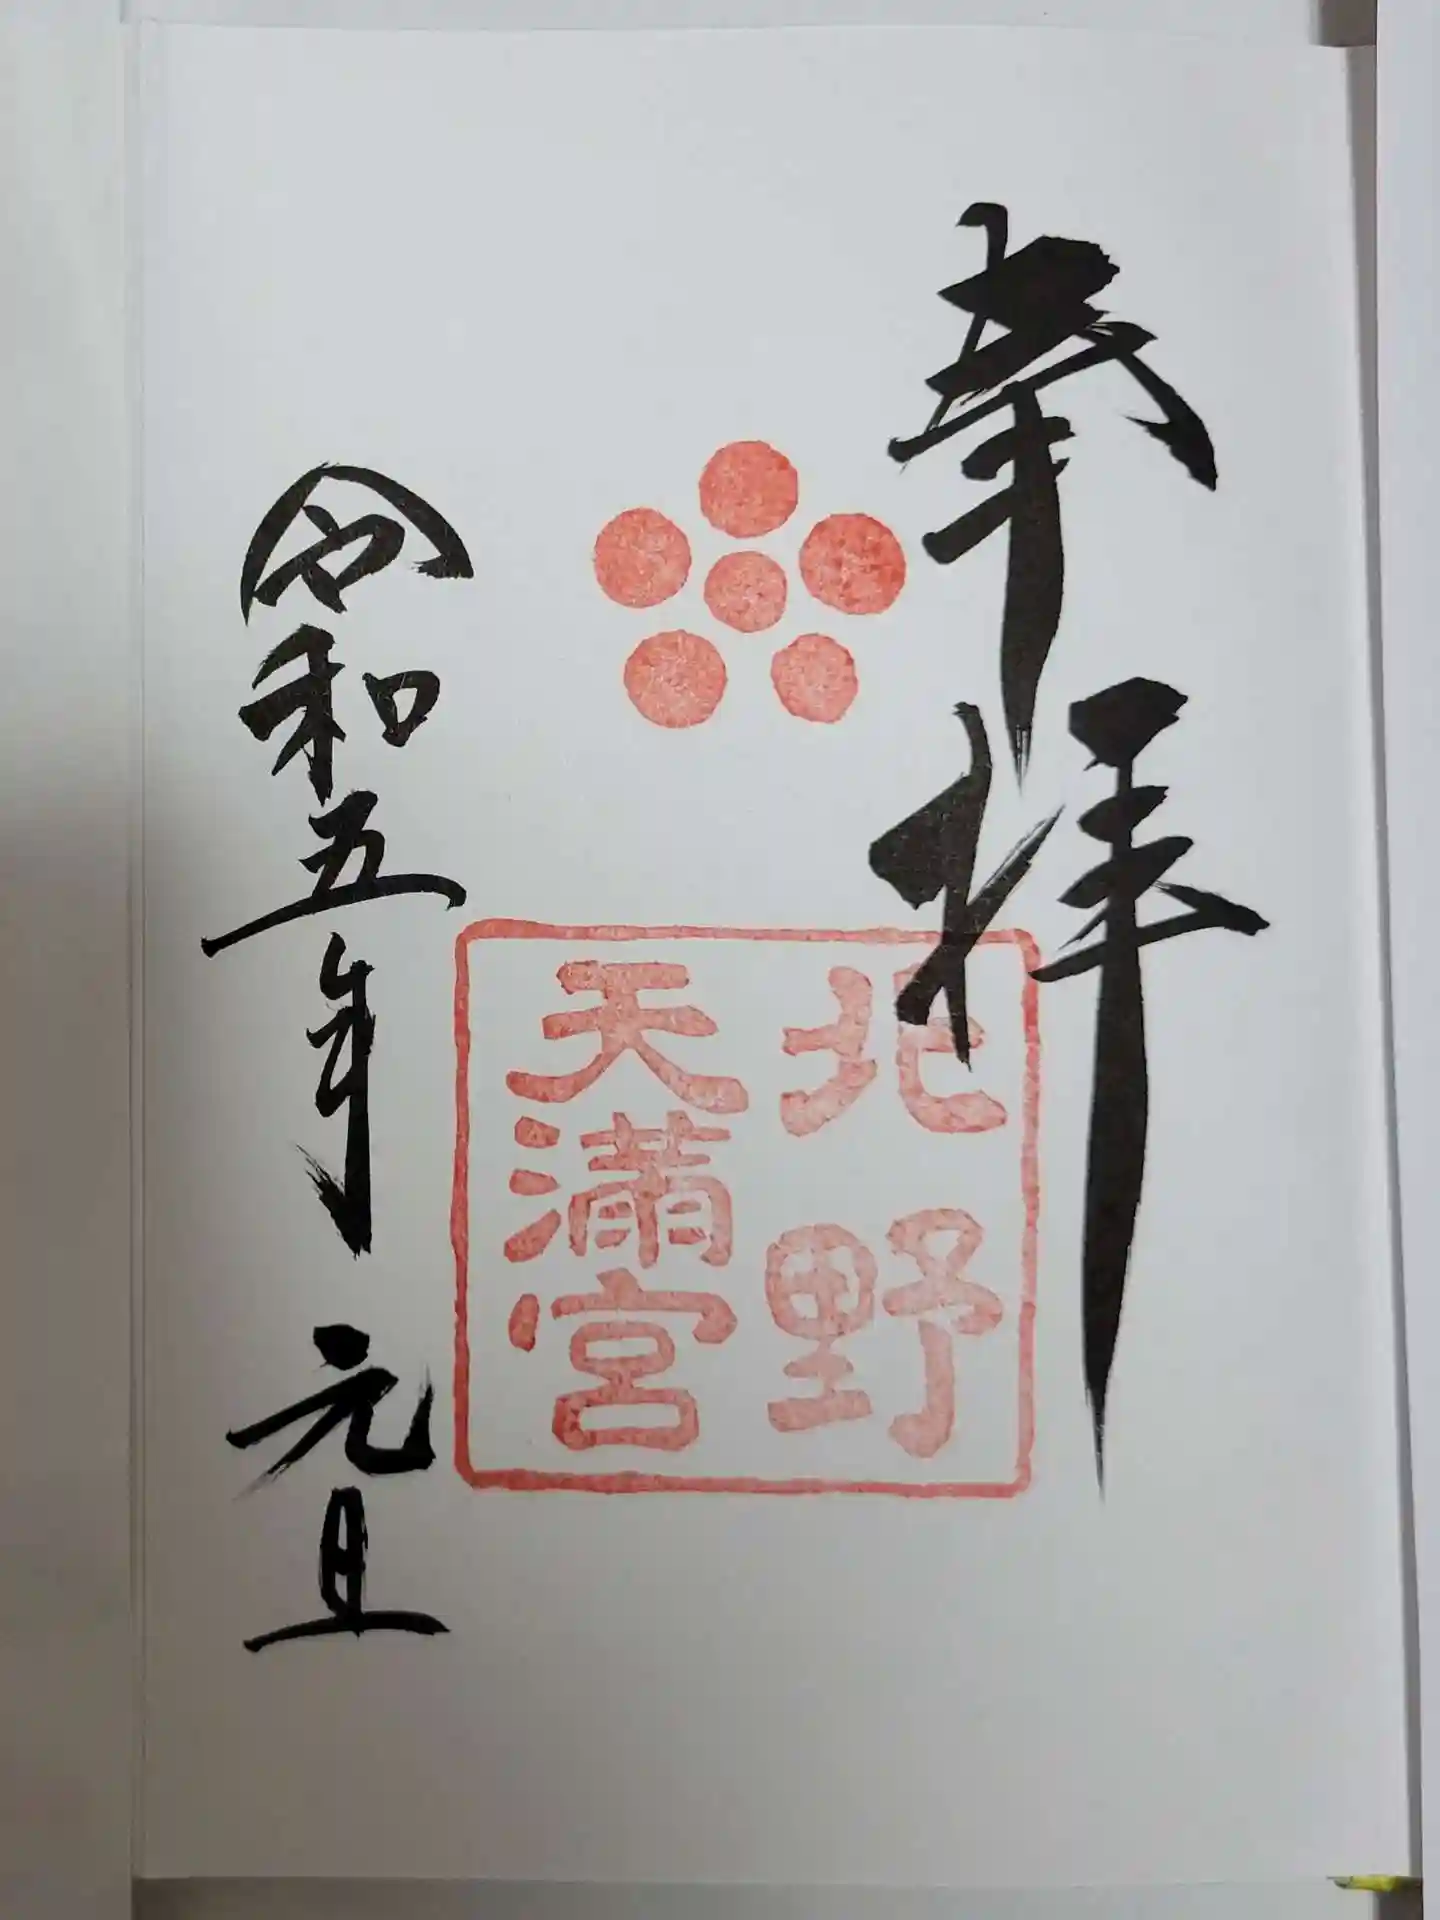 奉拝
北野
天満宮
令和五年 元旦